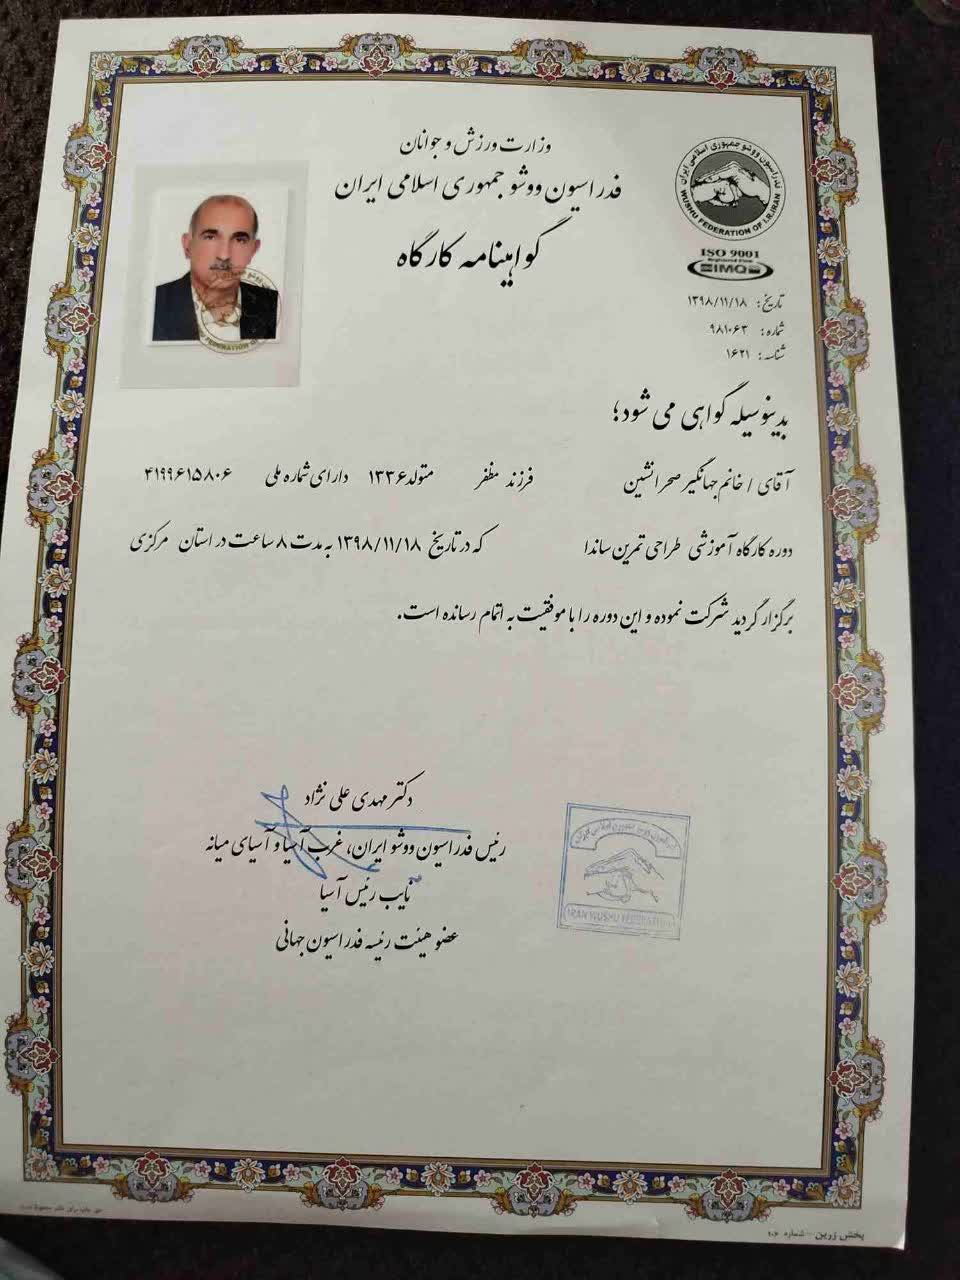 وزارت ورزش و جوانان
فدراسیون ووشو جمهوری اسلامی ایران
گواهینامه کارگاه
فدراسیون ووشو جمهوری اسلامی ایران
WUSHU FEDERATION OF I.R.IRAN
ISO 9001
IMQ
تاریخ: ۱۳۹۸/۱۱/۱۸
شماره: ۹۸۱۰۶۳
شناسه: ۱۶۲۱
بدینوسیله گواهی می شود؛
آقای / خانم جهانگیر صحرانشین فرزند مظفر متولد ۱۳۳۶ دارای شماره ملی ۴۱۹۹۶۱۵۸۰۶
دوره کارگاه آموزشی طراحی تمرین ساندا که در تاریخ ۱۳۹۸/۱۱/۱۸ به مدت ۸ ساعت در استان مرکزی
برگزار گردید شرکت نموده و این دوره را با موفقیت به اتمام رسانده است.
دکتر مهدی علی نژاد
رئیس فدراسیون ووشو ایران، غرب آسیا و آسیای میانه
نایب رئیس آسیا
عضو هیئت رئیسه فدراسیون جهانی
IRAN WUSHU FEDERATION
پخش زرین - شماره ۱۰۶